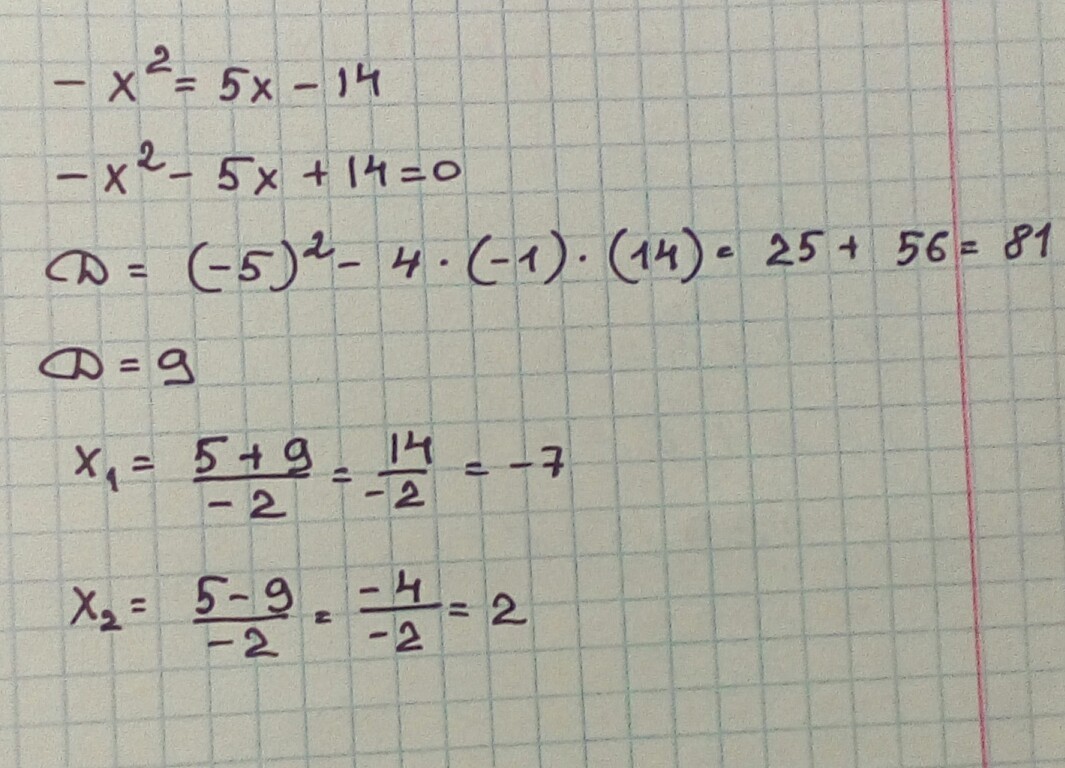 - x² = 5x - 14
- x² - 5x + 14 = 0
D = (-5)² - 4 · (-1) · (14) = 25 + 56 = 81
D = 9
x₁ = (5 + 9)/(-2) = 14/(-2) = -7
x₂ = (5 - 9)/(-2) = (-4)/(-2) = 2